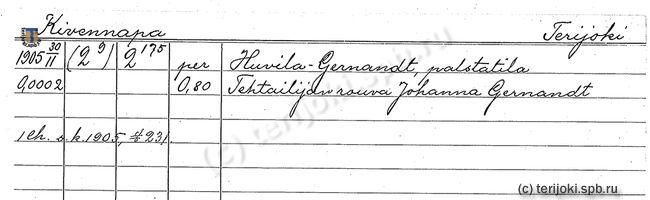 Kivennapa Terijoki
1905 30/11 (2⁹) 2¹⁷⁵ per Huvila-Gernandt, palstatila
0,0002 0,80 Tehtailijan rouva Johanna Gernandt
s.k. 1905, #231.
(c) terijoki.spb.ru
(c) terijoki.spb.ru